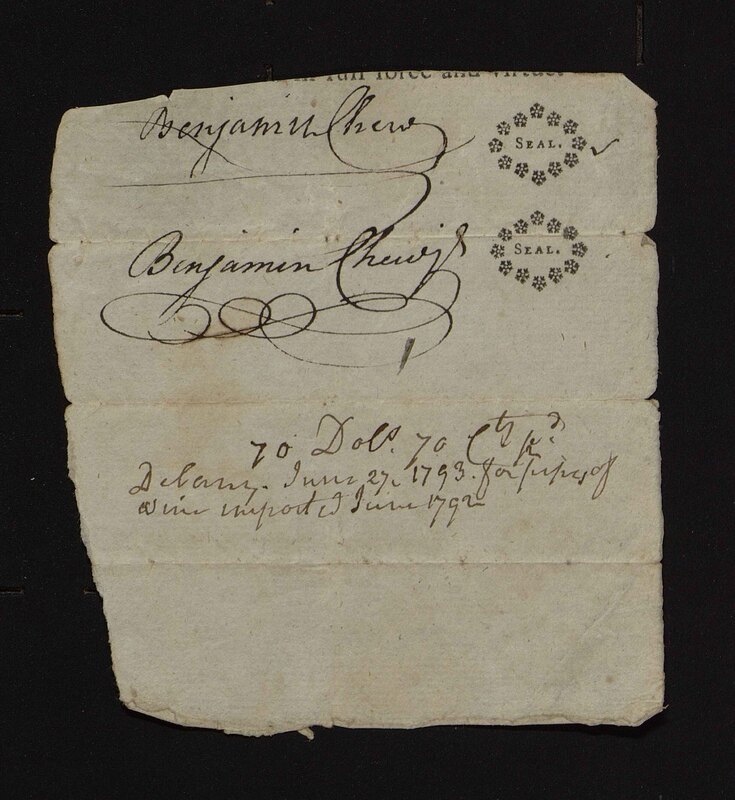 in full force and virtue.
Benjamin Chew
SEAL.
Benjamin Chew jr
SEAL.
70 Dols. 70 Cts pd
Delany. June 27. 1793. for pipes of
wine imported June 1792